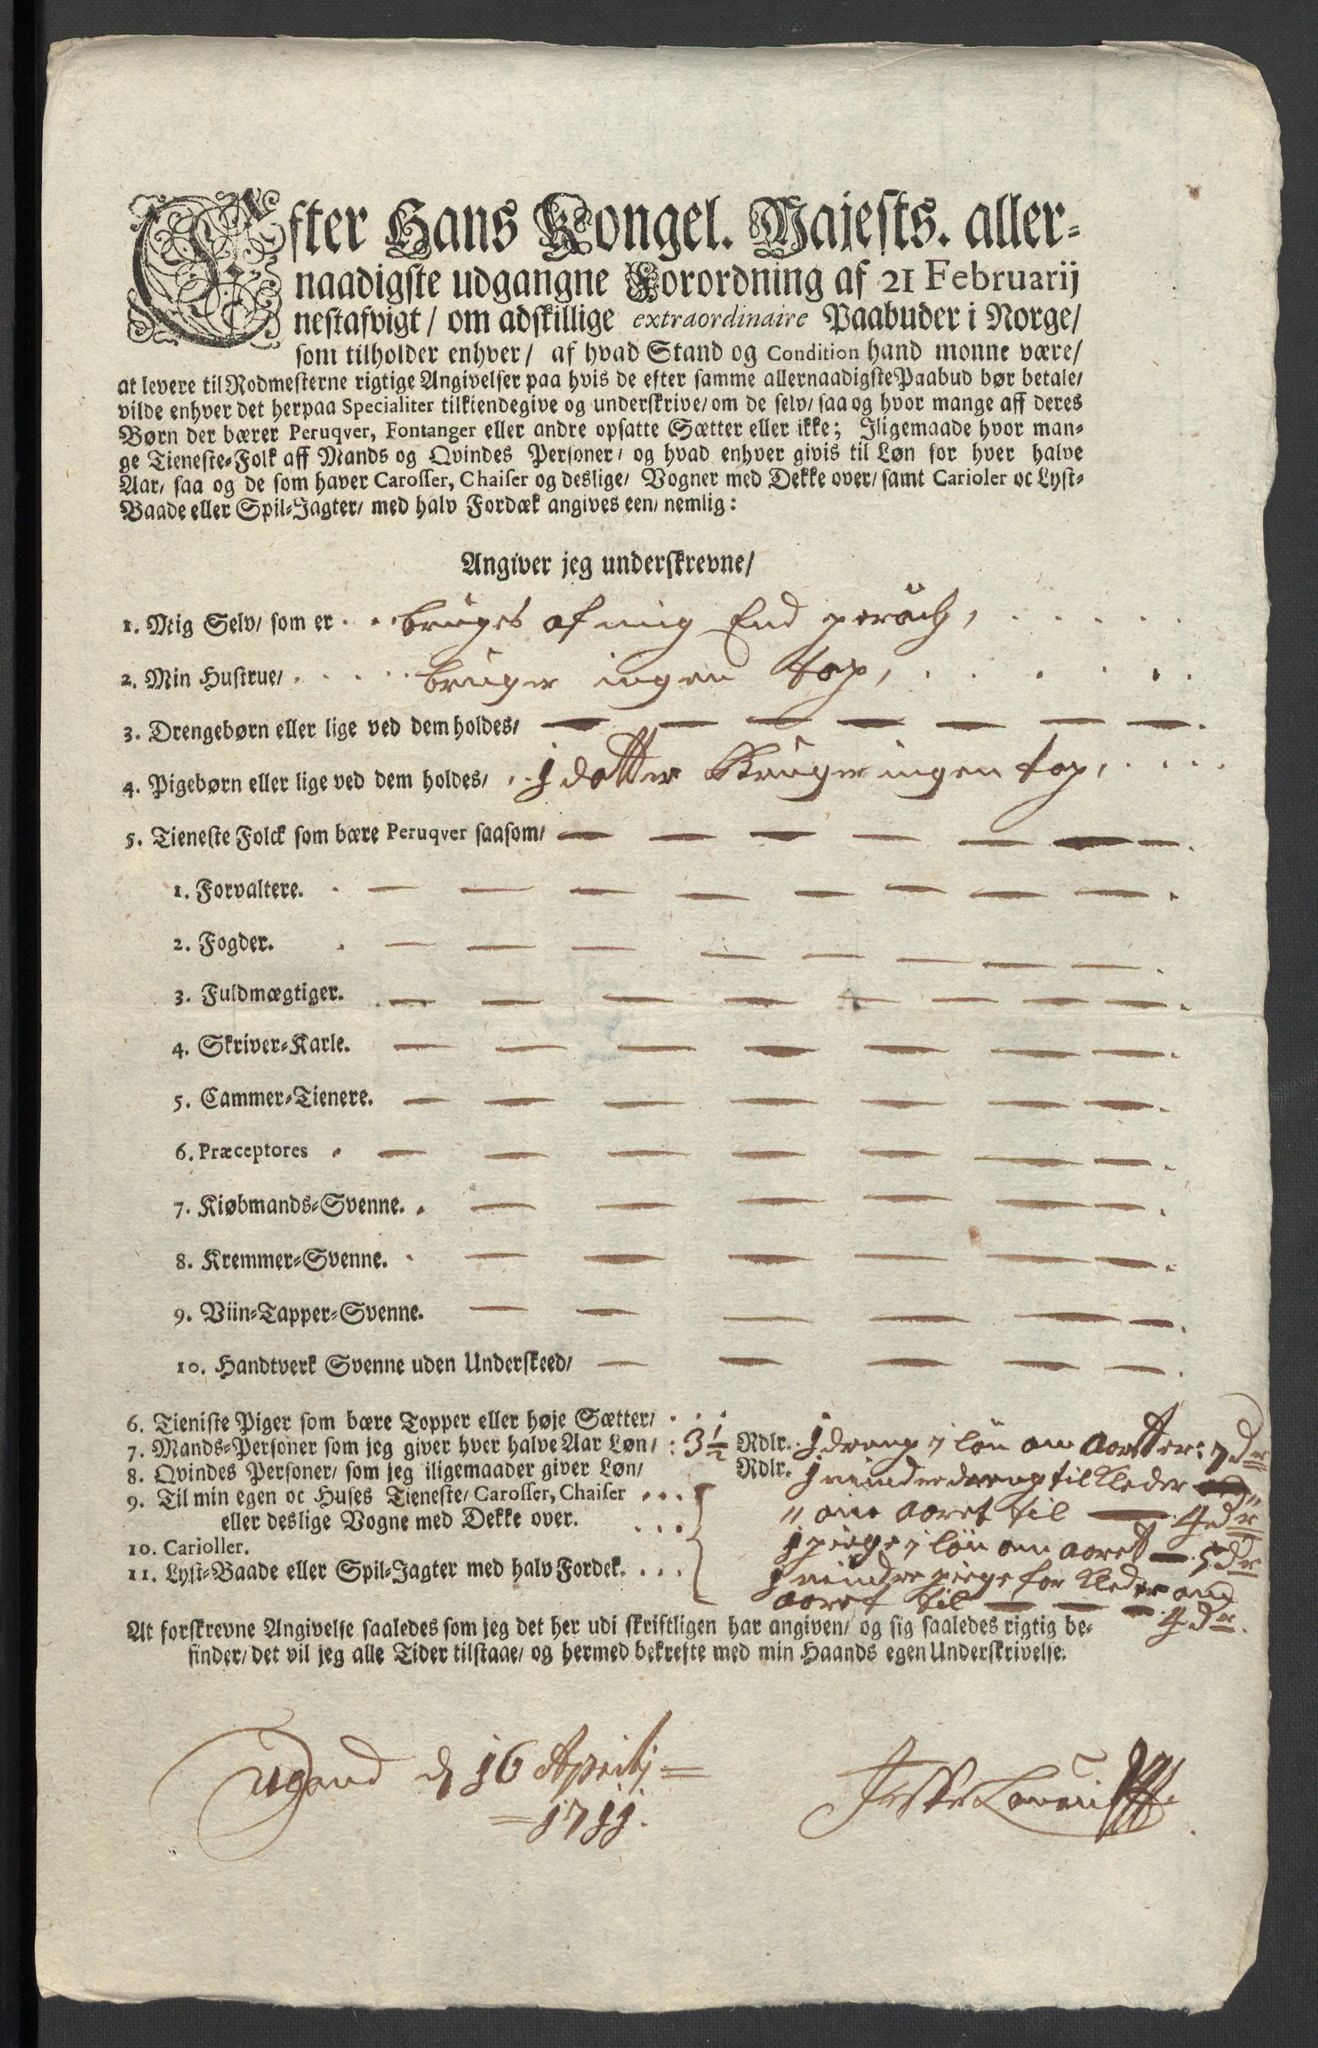 Efter Hans Kongel. Majests. aller-
naadigste udgangne Forordning af 21 Februarij
nestafvigt/ om adskillige extraordinaire Paabuder i Norge/
som tilholder enhver/ af hvad Stand og Condition hand monne være/
at levere til Rodmesterne rigtige Angivelser paa hvis de efter samme allernaadigste Paabud bør betale/
vilde enhver det herpaa Specialiter tilkiendegive og underskrive/ om de selv/ saa og hvor mange aff deres
Børn der bærer Peruqver, Fontanger eller andre opsatte Sætter eller ikke; Iligemaade hvor man-
ge Tieneste-Folk aff Mands og Qvindes Personer/ og hvad enhver givis til Løn for hver halve
Aar/ saa og de som haver Carosser, Chaiser og deslige/ Vogner med Dekke over/ samt Carioler oc Lyst-
Baade eller Spil-Jagter/ med halv Fordæk angives een/ nemlig:
Angiver jeg underskrevne/
1. Mig Selv/ som er bruges af mig End peruch,
2. Min Hustrue/ bruger ingen top,
3. Drengebørn eller lige ved dem holdes/
4. Pigebørn eller lige ved dem holdes/ 1 dotter Bruger ingen top,
5. Tieneste Folck som bære Peruqver saasom/
1. Forvaltere.
2. Fogder.
3. Fuldmægtiger.
4. Skriver-Karle.
5. Cammer-Tienere.
6. Præceptores
7. Kiøbmands-Svenne.
8. Kremmer-Svenne.
9. Viin-Tapper-Svenne.
10. Handtverk Svenne uden Underskeed/
6. Tieniste Piger som bære Topper eller høje Sætter/
7. Mands-Personer som jeg giver hver halve Aar Løn/ : 3½ Rdlr. 1 dreng j løn om aaret er: 7 dr
8. Qvindes Personer/ som jeg iligemaader giver Løn/ Rdlr. 1 mindre dreng til kleder
9. Til min egen oc Huses Tieneste/ Carosser, Chaiser
eller deslige Vogne med Dekke over. om aaret til 4 dr
10. Carioller. 1 piege j løn om aaret 5 dr
11. Lyst-Baade eller Spil-Jagter med halv Fordek. 1 mindre piege for kleder om
aaret til 4 dr.
At forskrevne Angivelse saaledes som jeg det her udi skriftligen har angiven/ og sig saaledes rigtig be-
finder/ det vil jeg alle Tider tilstaae/ og hermed bekrefte med min Haands egen Underskrivelse.
d 16 Aprilij
1711.